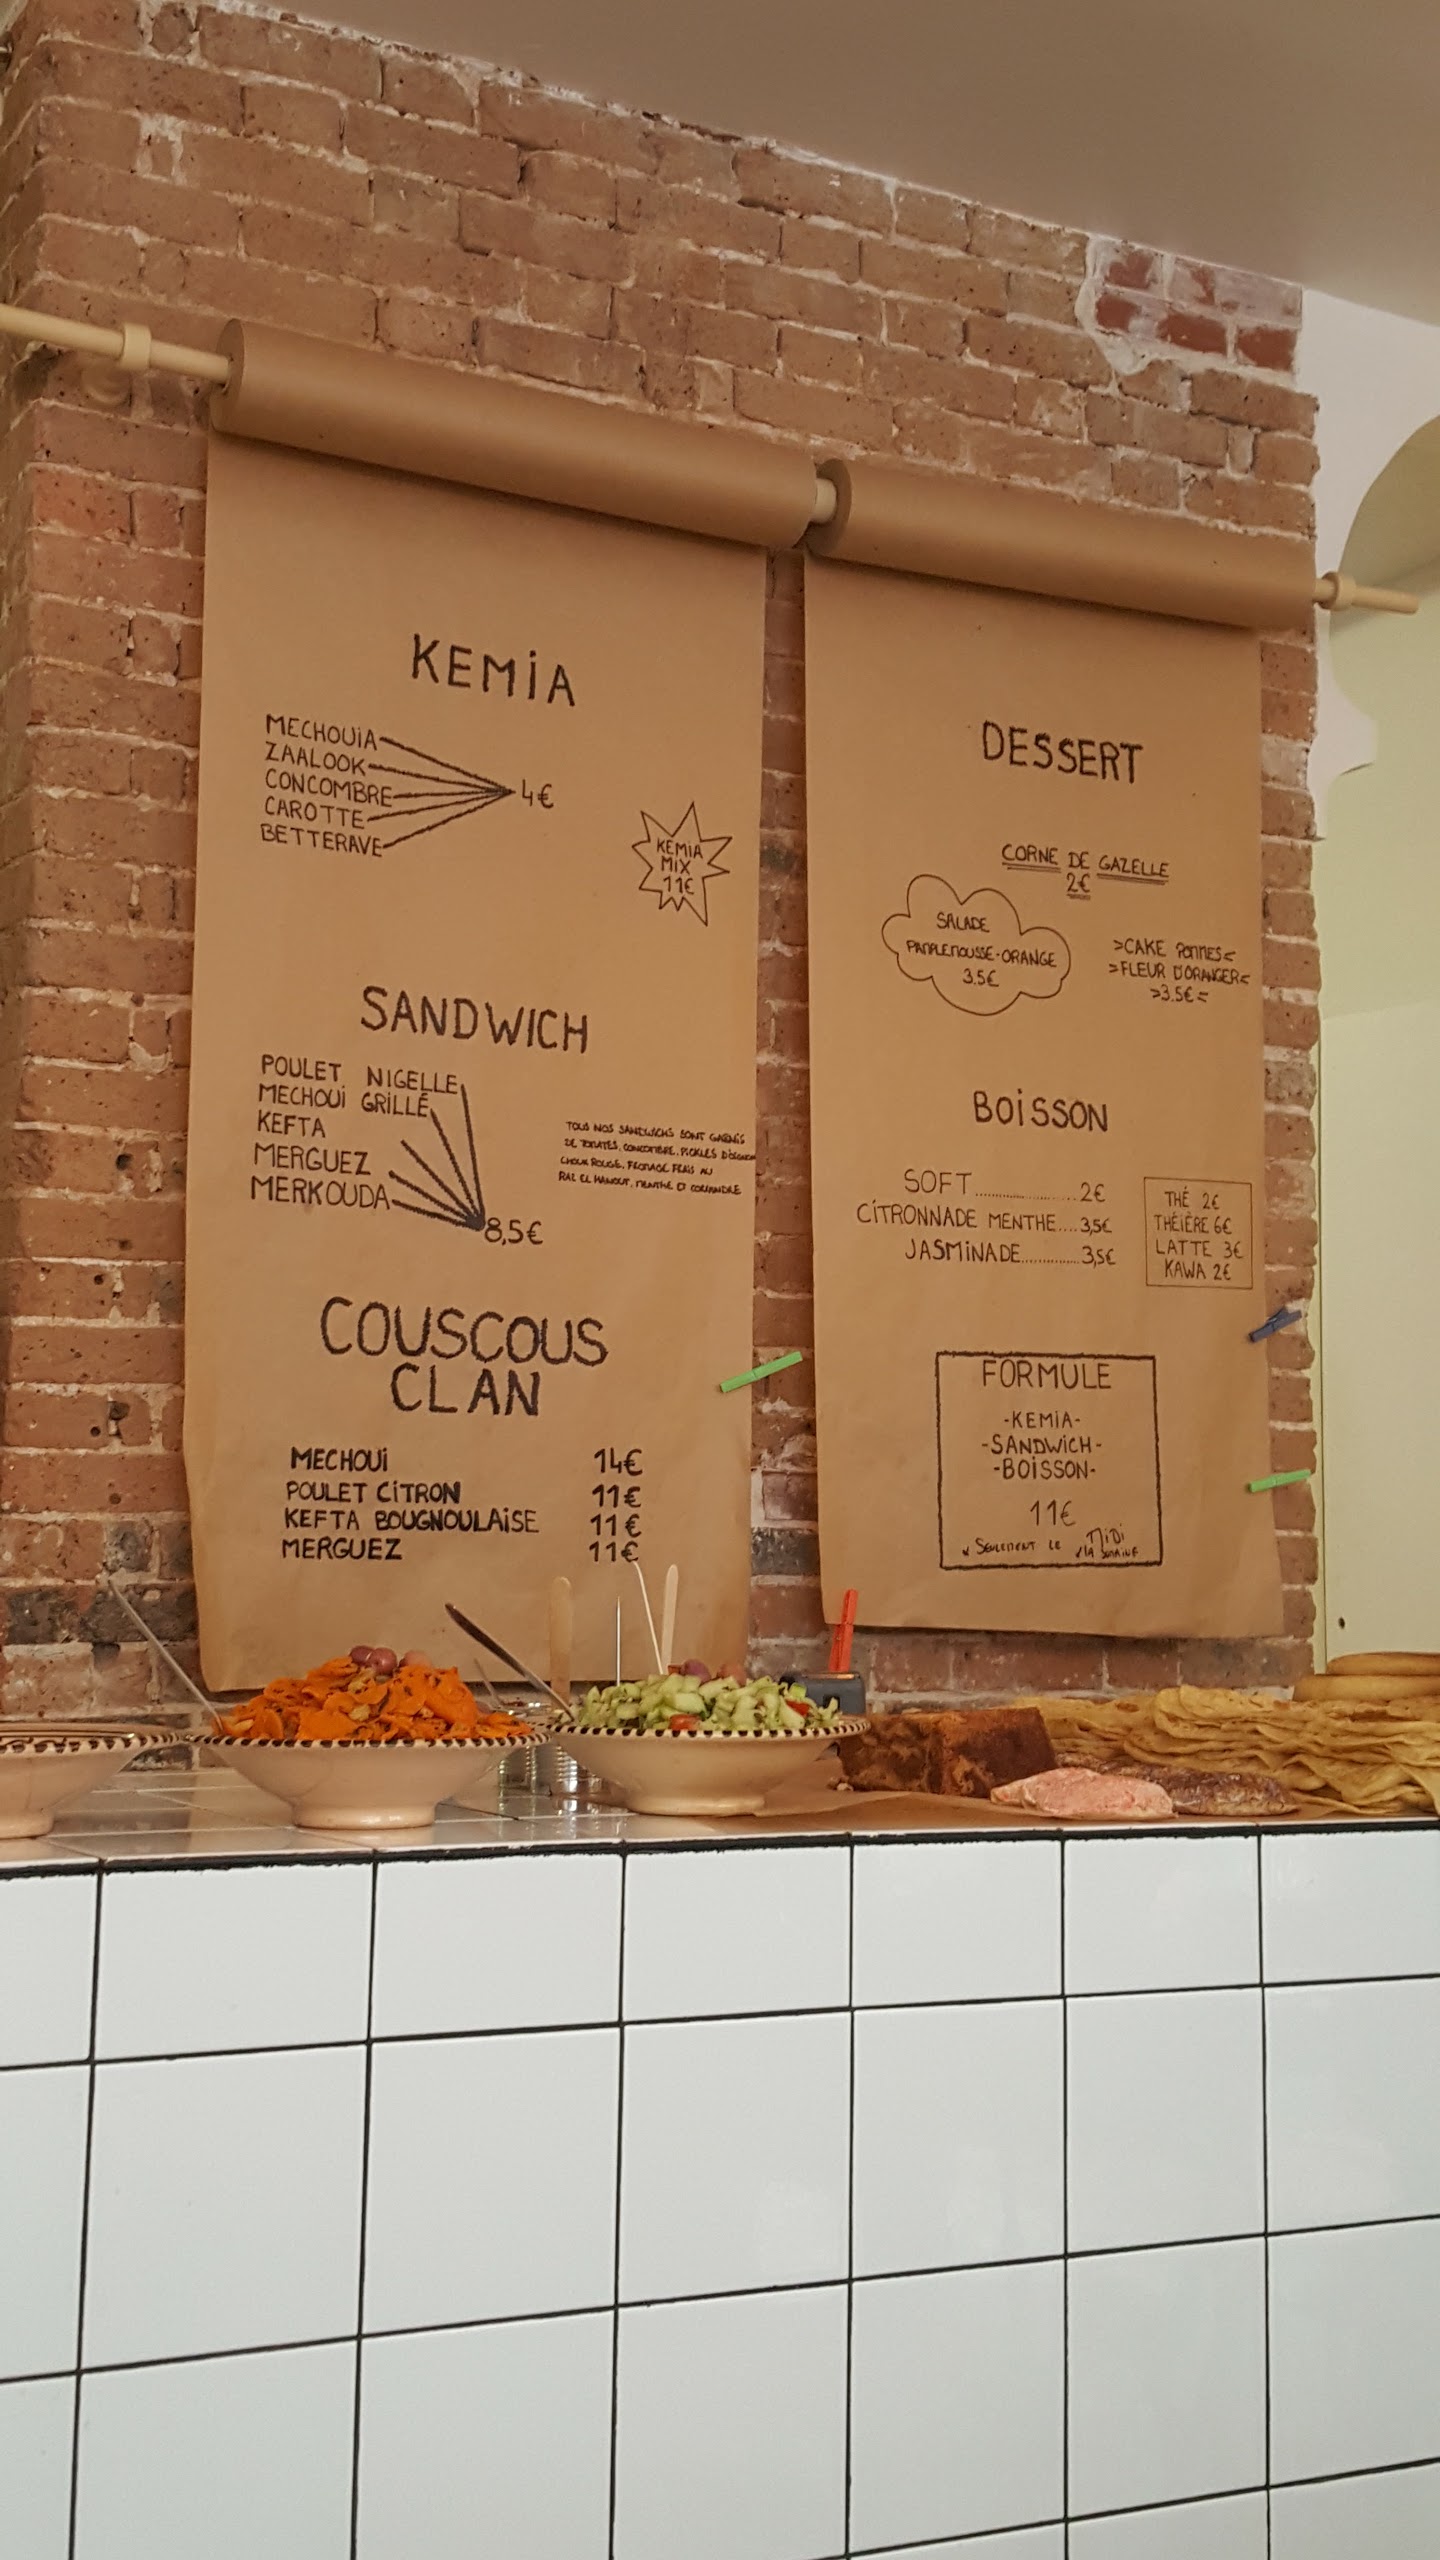 KEMiA
MECHOUiA
ZAALOOK
CONCOMBRE
CAROTTE
BETTERAVE
4€
KEMIA
MIX
11€
SANDWICH
POULET NIGELLE
MECHOUi GRiLLÉ
KEFTA
MERGUEZ
MERKOUDA
8,5€
TOUS NOS SANDWICHS SONT GARNIS
DE TOMATES, CONCOMBRE, PICKLES D'OIGNON
CHOUX ROUGE, FROMAGE FRAIS AU
RAZ EL HANOUT, MENTHE ET CORIANDRE
COUSCOUS
CLAN
MECHOUi 14€
POULET CiTRON 11€
KEFTA BOUGNOULAiSE 11€
MERGUEZ 11€
DESSERT
CORNE DE GAZELLE
2€
SALADE
PAMPLEMOUSSE-ORANGE
3.5€
>CAKE POMMES<
>FLEUR D'ORANGER<
>3.5€<
BOiSSON
SOFT......................2€
CiTRONNADE MENTHE....3,5€
JASMiNADE...............3,5€
THÉ 2€
THÉIÈRE 6€
LATTE 3€
KAWA 2€
FORMULE
-KEMIA-
-SANDWICH-
-BOiSSON-
11€
* SEULEMENT LE MiDi
LA SEMAINE